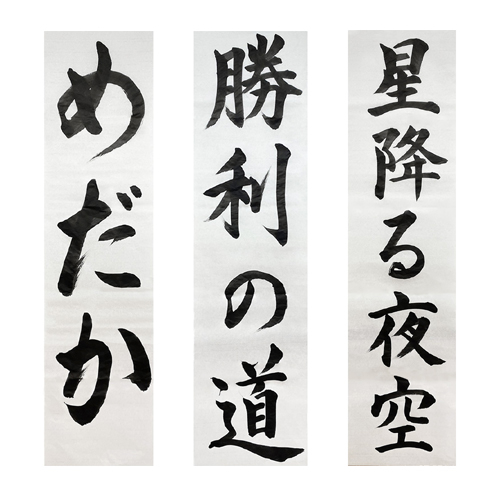 星降る夜空
勝利の道
めだか